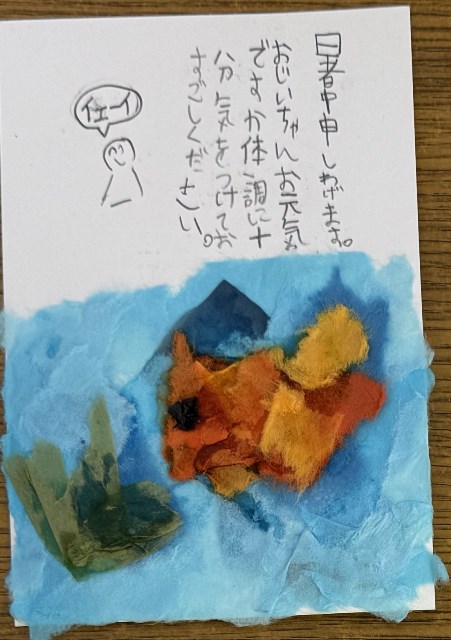 暑中申しあげます。
おじいちゃんお元気
ですか体調に十
分気をつけてお
すごしください。
イエーイ